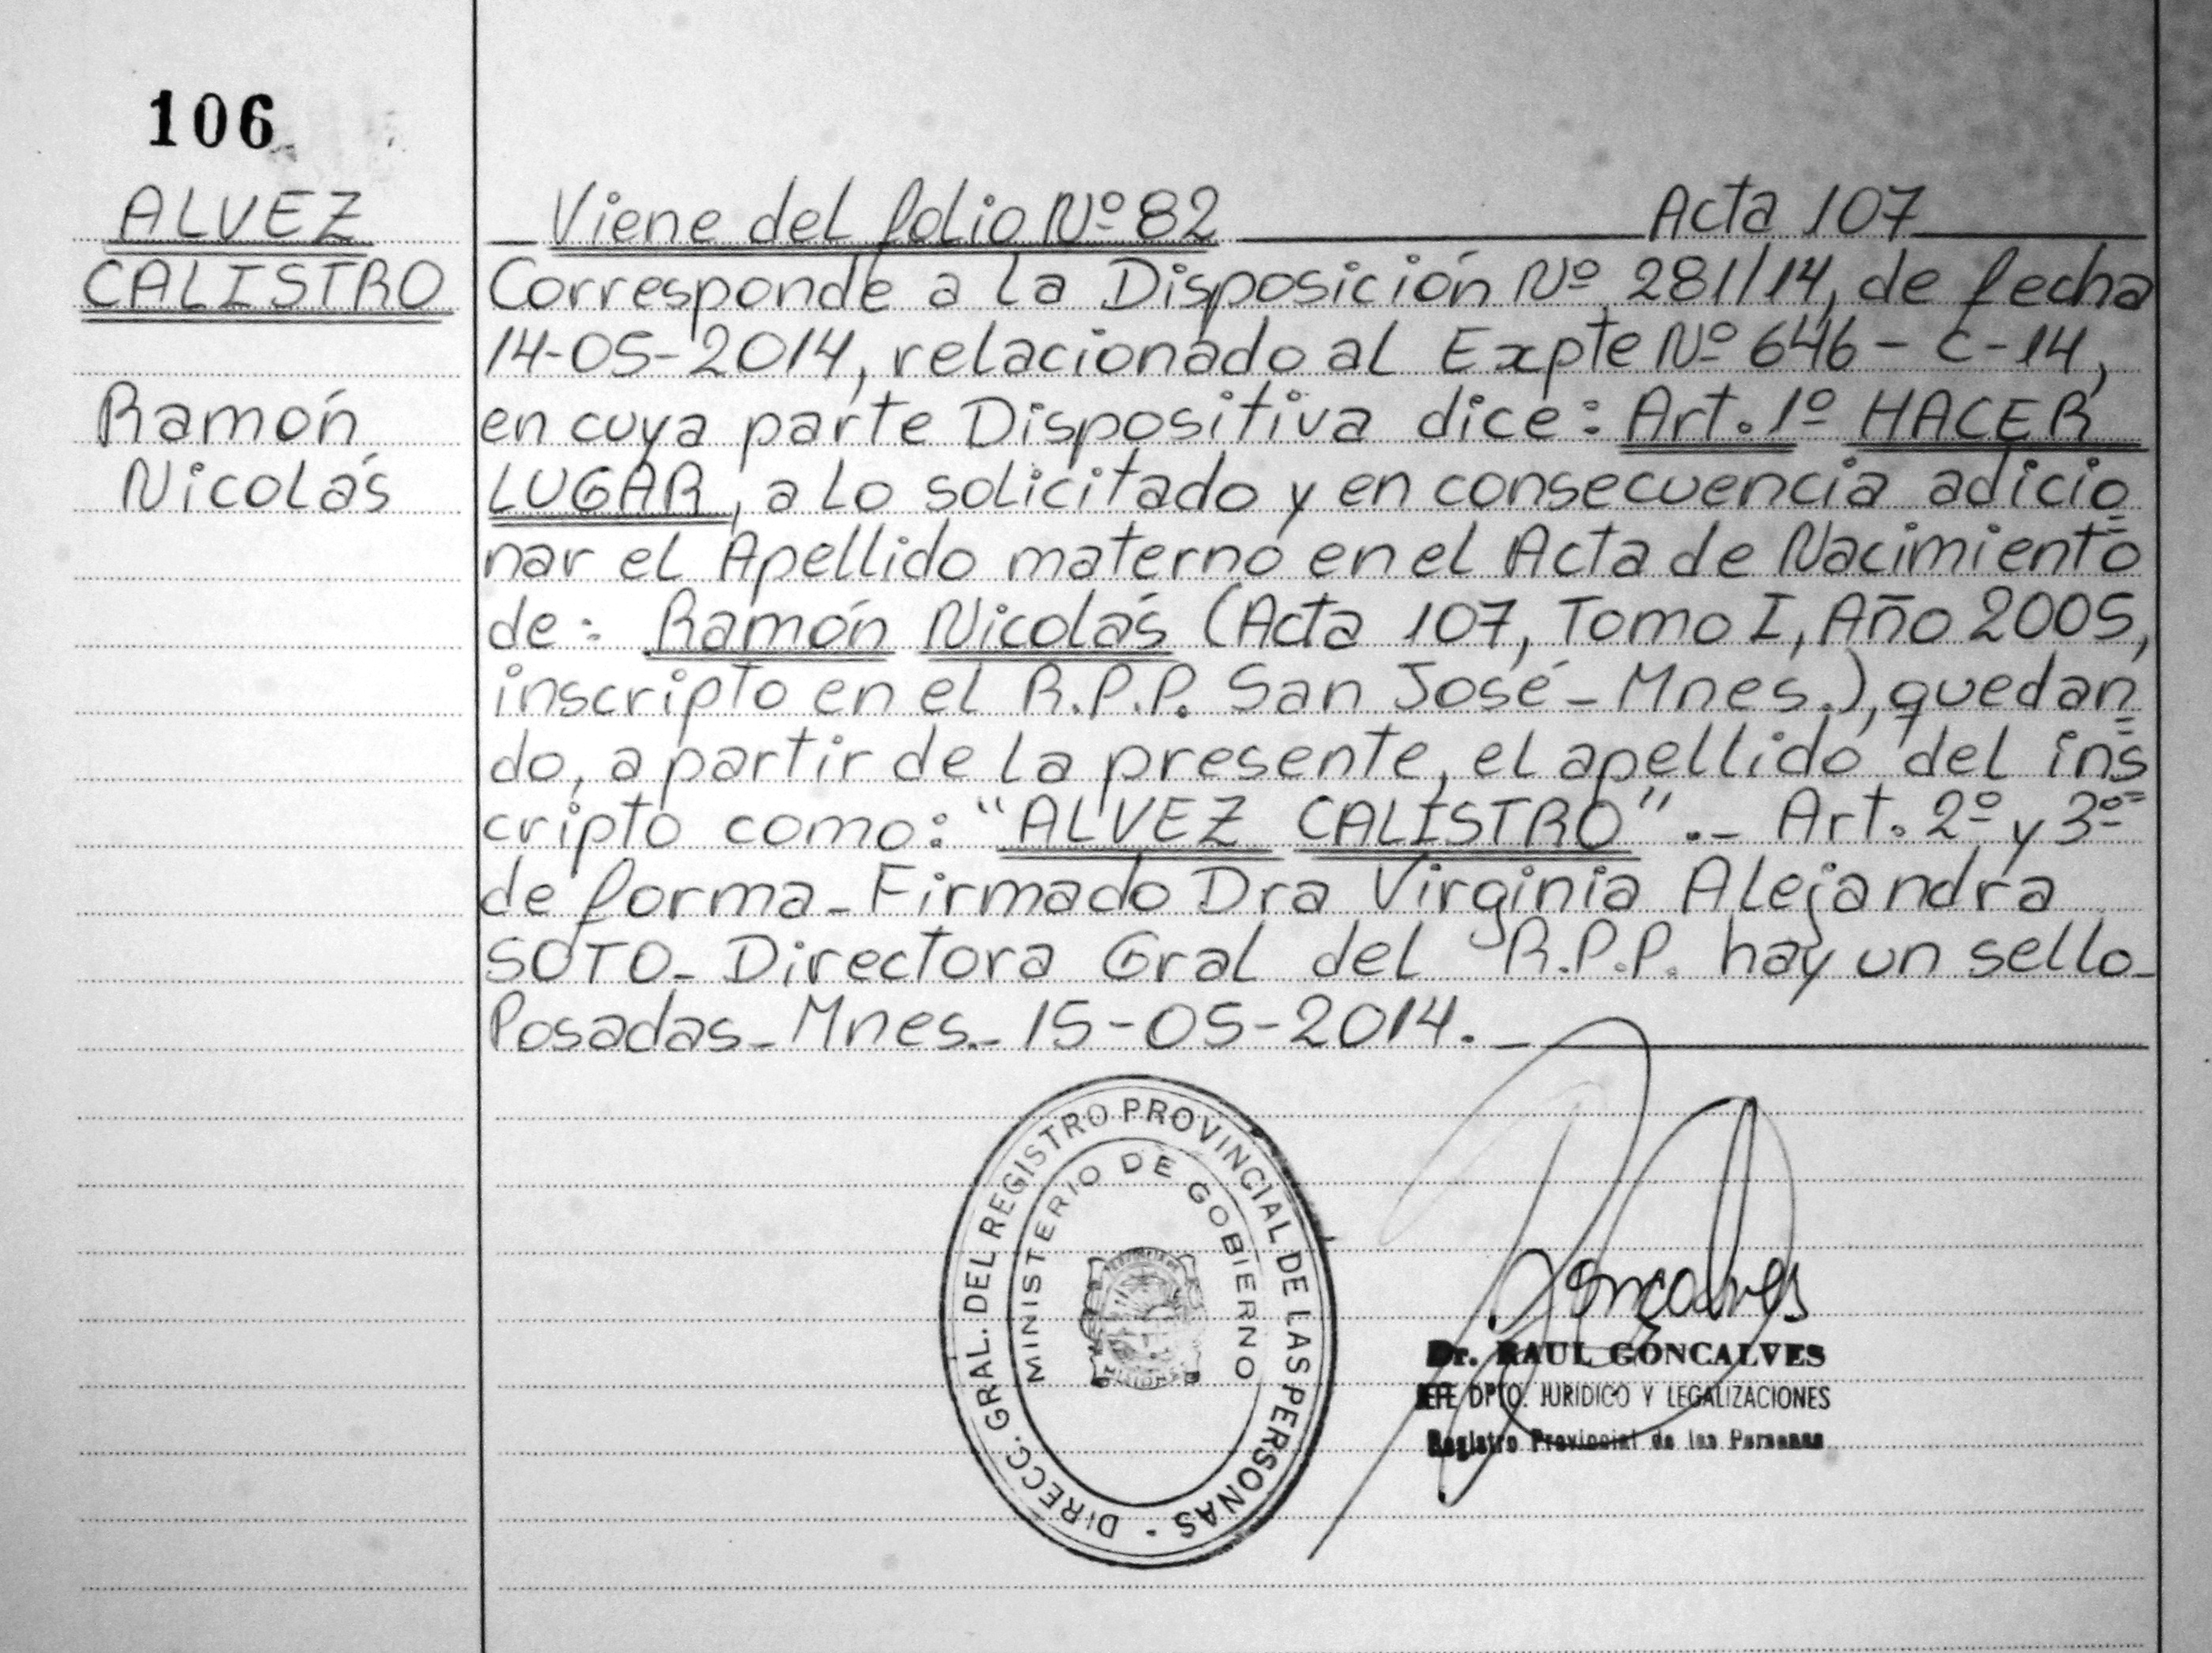 106
ALVEZ
CALISTRO
Ramón
Nicolás
Viene del folio Nº 82 Acta 107
Corresponde a la Disposición Nº 281/14, de fecha
14-05-2014, relacionado al Expte Nº 646 - C-14,
en cuya parte Dispositiva dice: Art. 1º HACER
LUGAR, a lo solicitado y en consecuencia adicio
nar el Apellido materno en el Acta de Nacimiento
de: Ramón Nicolás (Acta 107, Tomo I, Año 2005,
inscripto en el R.P.P. San José - Mnes.), quedan
do, a partir de la presente, el apellido del ins
cripto como: "ALVEZ CALISTRO".- Art. 2º y 3º
de forma - Firmado Dra Virginia Alejandra
SOTO - Directora Gral del R.P.P. hay un sello -
Posadas - Mnes. - 15-05-2014. -
DIRECC. GRAL. DEL REGISTRO PROVINCIAL DE LAS PERSONAS -
MINISTERIO DE GOBIERNO
Goncalves
Dr. RAUL GONCALVES
JEFE DPTO. JURIDICO Y LEGALIZACIONES
Registro Provincial de las Personas